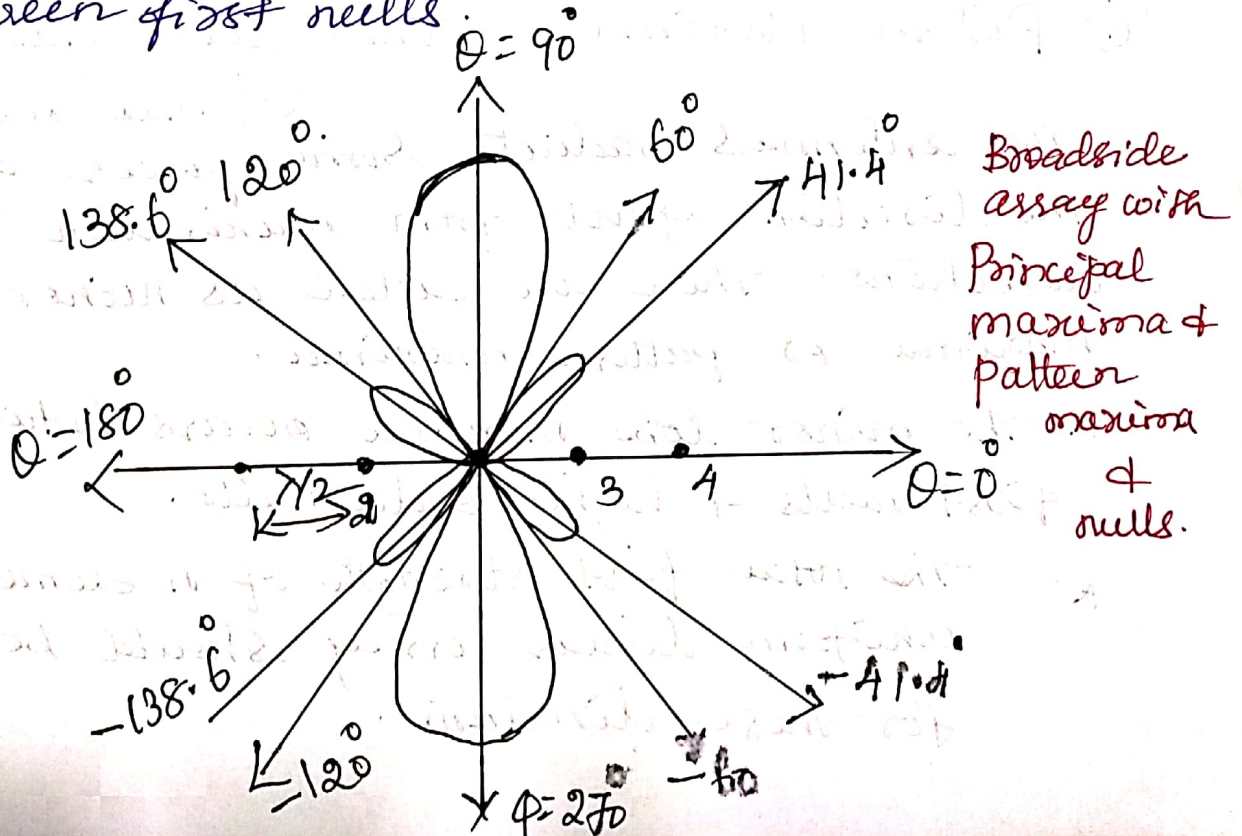 reen first nulls.
θ = 90°
138.6°
120°.
60°
41.4°
Broadside
array with
Principal
maxima &
pattern
maxima
&
nulls.
θ = 180°
λ/2
2
3
4
θ = 0°
-138.6°
-120°
φ = 270°
-60
-41.4°